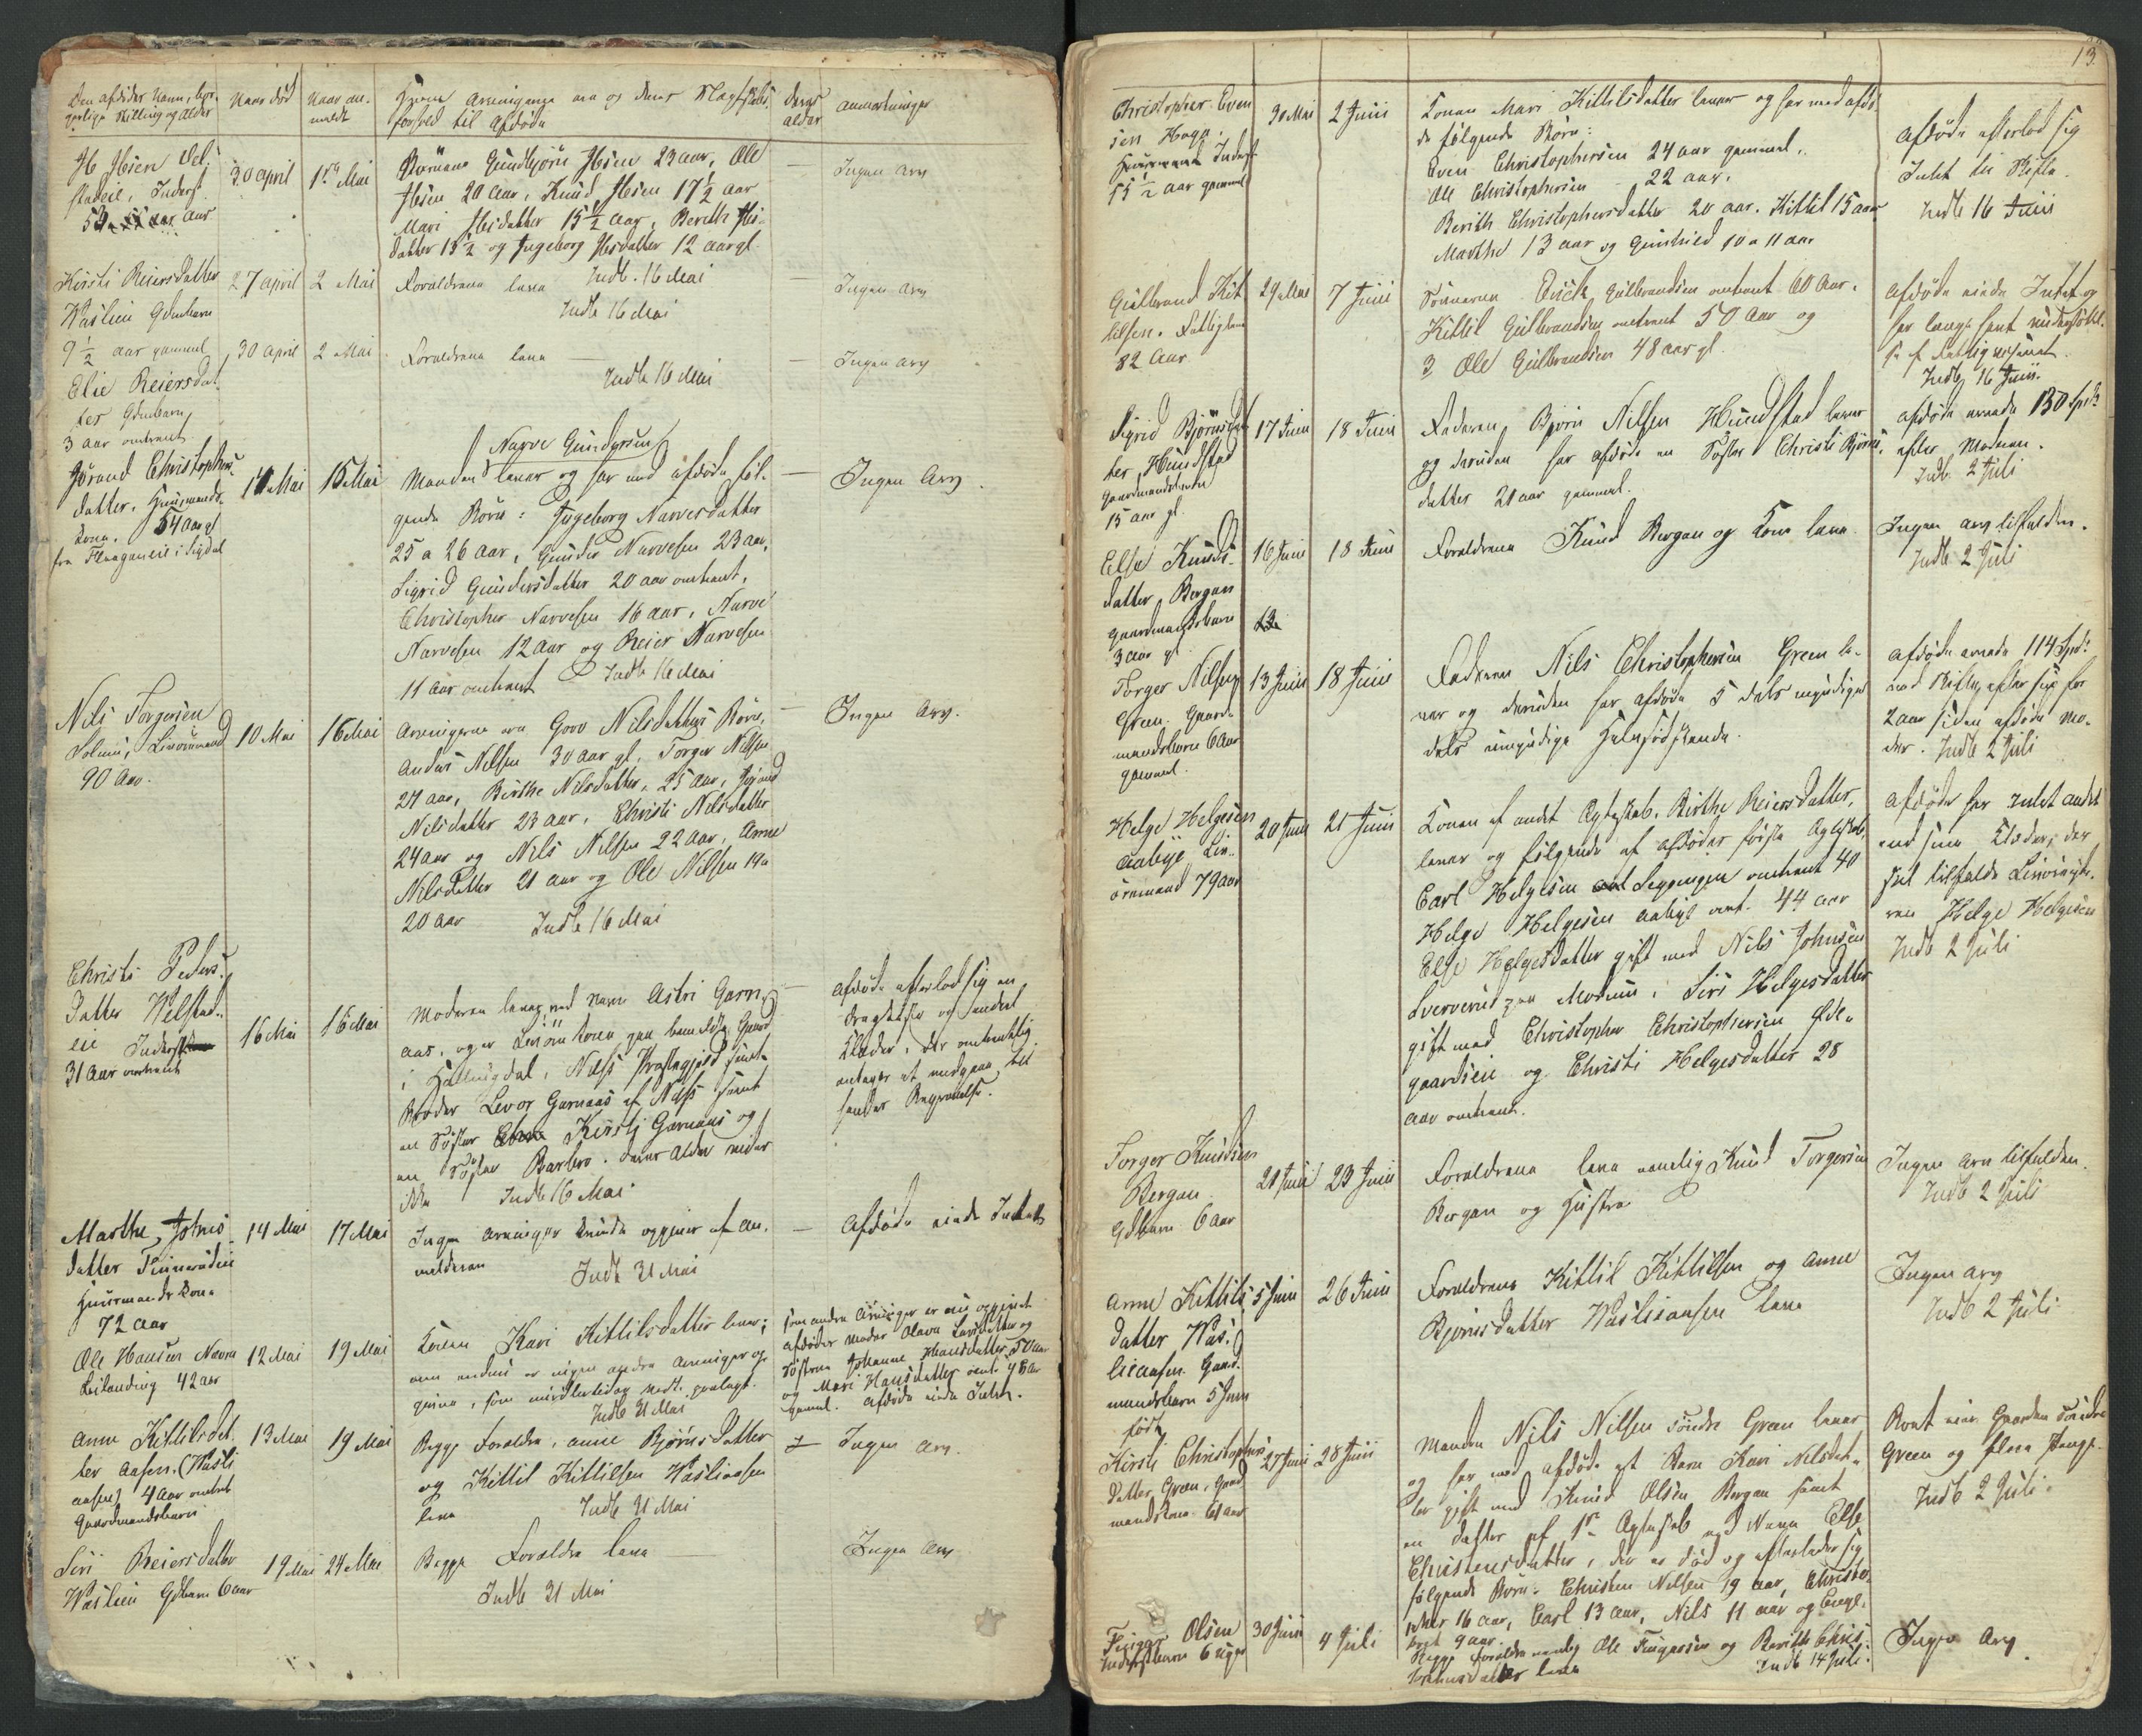 Den afdødes Navn, bor-
gerlige Stilling og Alder
Naar død
Naar an-
meldt
Hvem Arvingerne ere og deres Slægtskabs
forhold til Afdøde
deres
alder
Anmærkninger
30 april
1ste Mai
Børnene Gundbjørn Ibsen 23 aar, Ole
Ibsen 20 aar, Knud Ibsen 17½ aar
Mari Ibsdatter 15½ aar, Berith Ibs-
datter 13½ og Ingeborg Ibsdatter 12 aar gl.
Indb. 16 Mai
Ingen Arv
Kirsti Reiersdatter
Waslien Gdmbarn
9½ aar gammel
27 april
2 Mai
Forældrene leve
Indb 16 Mai
Ingen Arv
Elie Reiersdat-
ter Gdmbarn
3 aar omtrent
30 April
2 Mai
Forældrene leve
Indb 16 Mai
Ingen Arv
Jørand Christophers-
datter, Huusmands-
kone, 54 aar gl
fra Flaagan eie i Sigdal
11 Mai
15 Mai
Narve Gundersen
Manden lever og har med afdøde føl-
gende Børn: Ingeborg Narvesdatter
25 a 26 aar, Gunder Narvesen 23 aar,
Sigrid Gundersdatter 20 aar omtrent,
Christopher Narvesen 16 aar, Narve
Narvesen 12 aar og Reier Narvesen
11 aar omtrent
Indb 16 Mai
Ingen Arv.
Nils Torgersen
90 Aar.
10 Mai
16 Mai
Arvingerne ere Goro Nilsdatters Børn,
Anders Nilsen 30 aar gl. Torger Nilsen
27 aar, Birthe Nilsdatter, 25 aar, Jørand
Nilsdatter 23 aar, Christi Nilsdatter
24 aar og Nils Nilsen 22 aar, Anne
Nilsdatter 21 aar og Ole Nilsen 19 a
20 aar
Indb 16 Mai
Ingen Arv.
Christi Peders-
datter Welstad-
eie Inderst
31 Aar omtrent
16 Mai
16 Mai
Moderen lever ved Navn Astri Garn-
aas, og er Livøre kone paa bemeldte Gaard
i Hallingdal, Næss Præstegjeld samt
Broder Levor Garnaas af Næss samt
en Søster Kirsti Garnaas og
en Søster Barbro. deres Alder vides
ikke
Indb 16 Mai.
Afdøde efterlod sig en
Dragkiste og endeel
Klæder, der omtrentlig
antages at medgaae til
hendes Begravelse.
Marthe Johns-
datter Finnerudeie
Huusmands Kone
72 aar
14 Mai
17 Mai
Ingen Arvinger kunde opgives af an-
melderen
Indb 31 Mai
Afdøde eiede Intet
Ole Hansen Nævra
Leilænding 42 aar
12 Mai
19 Mai
Konen Kari Kittilsdatter lever;
om endnu er nogen andre Arvinger op-
givne, som imidlertid er nedt. paalagt.
Indb 31 Mai
Som andre Arvinger er nu opgivet
afdødes Moder Olava Larsdatter og
Søstrene Johanne Hansdatter 50 aar
og Mari Hansdatter omt. 48 Aar
gammel. Afdøde eiede Intet.
Anne Kittilsdat-
ter Aasen (Wasli
aasen) 4 Aar omtrent
Gaardmandsbarn
13 Mai
19 Mai
Begge Forældre, Anne Bjørnsdatter
og Kittil Kittilsen Wasliaasen
leve
Indb 31 Mai
Ingen Arv.
Siri Reiersdatter
Waslien Gdbarn 6 aar
19 Mai
24 Mai
Begge Forældre leve
Indb 31 Mai
Ingen Arv
13
Christopher Even
sen Haga.
Huusmand Inderst
55½ aar gammel
30 Mai
2 Junii
Konen Mari Kittilsdatter lever og har med afdø-
de følgende Børn:
Even Christophersen 24 aar gammel.
Ole Christophersen 22 aar.
Berith Christophersdatter 20 aar. Kittil 15 aar
Marthe 13 aar og Gunhild 10 a 11 aar
Afdøde efterlod sig
Intet til Skifte.
Indb 16 Junii
Gulbrand Kit-
tilsen. Fattiglem
82 Aar
29 Mai
7 Junii
Sønnerne Erick Gulbrandsen omtrent 60 Aar.
Kittil Gulbrandsen omtrent 50 Aar og
3, Ole Gulbrandsen 48 aar gl.
Afdøde eiede Intet og
har længe havt understøttel-
se af Fattigvæsenet.
Indb 16 Junii.
Sigrid Bjørnsdat-
ter Hundstad
Gaardmandsbarn
15 aar gl.
17 Junii
18 Junii
Faderen, Bjørn Nilsen Hundstad lever
og desuden har afdøde en Søster Christi Bjørns-
datter 21 aar gammel.
Afdøde arvede 130 Spdr
efter Moderen.
Indb. 2 Juli
Else Knuds-
datter, Bergan
Gaardmandsbarn
3 aar gl.
16 Junii
18 Junii
Forældrene Knud Bergan og Kone leve.
Ingen arv tilfalden.
Indb 2 Juli
Torger Nilsen
Green. Gaard-
mandsbarn 6 Aar
gammel.
13 Junii
18 Junii
Faderen Nils Christophersen Green le-
ver og desuden har afdøde 5 dels myndige
dels umyndige Helsødskende.
Afdøde arvede 114 Spdr
ved Skiftet efter sin for
2 aar siden afdøde Mo-
der. Indb 2 Juli
Helge Helgesen
Aabye Liv-
øremand 79 aar
20 Junii
21 Junii
Konen af andet Ægteskab. Birthe Reiersdatter,
lever og følgende af afdødes første Ægteskab.
Carl Helgesen omtrent 40
Helge Helgesen Aabye omt. 44 aar
Else Helgesdatter gift med Nils Johnsen
Sververud paa Modum, Siri Helgesdatter
gift med Christopher Christophersen Olde-
gaardseie og Christi Helgesdatter 28
aar omtrent.
Afdøde har Intet andet
end sine Klæder, der
skal tilfalde Livøreyde-
ren Helge Helgesen
Indb 2 Juli
Torger Knudsen
Bergan
Gdbarn 6 Aar
21 Junii
23 Junii
Forældrene leve nemlig Knud Torgersen
Bergan og Hustru
Ingen Arv tilfalden.
Indb 2 Juli
Anne Kittils-
datter Was-
lieaasen. Gaard-
mandsbarn 5 Juni
født
5 Juni
26 Junii
Forældrene Kittil Kittilsen og Anne
Bjørnsdatter Wasliaasen leve
Ingen Arv
Indb 2 Juli.
Kirsti Christophers-
datter, Green, Gaard-
mandskone 61 aar
27 Junii
28 Junii
Manden Nils Nilsen søndre Green lever
og har med afdøde et Barn Kari Nilsdat-
ter gift med Knud Olsen Bergan samt
en datter af 1ste Ægteskab ved Navn Else
Christensdatter, der er død og efterlader sig
følgende Børn: Christen Nilsen 19 aar, Christo-
pher 16 aar, Carl 13 aar, Nils 11 aar og Engl-
9 aar.
Boet eier Gaarden Søndre
Green og flere Penge.
Indb 2 Juli.
Olsen
Inderstbarn 6 uger
30 Junii
4 Juli
Begge Forældre nemlig Ole Fingersen og Berith Chris-
leve
Indb 14 Juli.
Ingen Arv.